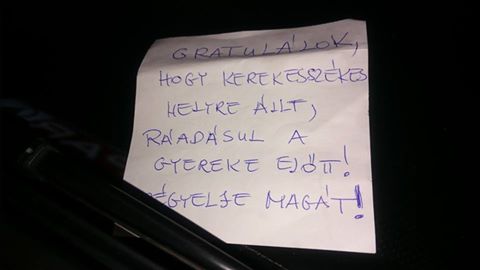 GRATULÁLOK,
HOGY KEREKESSZÉKES
HELYRE ÁLLT,
RÁADÁSUL A
GYEREKE ELŐTT!
ÉGYELJE MAGÁT!